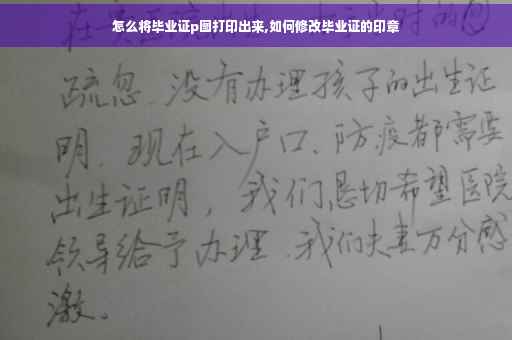 怎么将毕业证p图打印出来,如何修改毕业证的印章
在 时的
疏忽.没有办理孩子的出生证
明.现在入户口、防疫都需要
出生证明，我们恳切希望医院
领导给予办理.我们夫妻万分感
激。